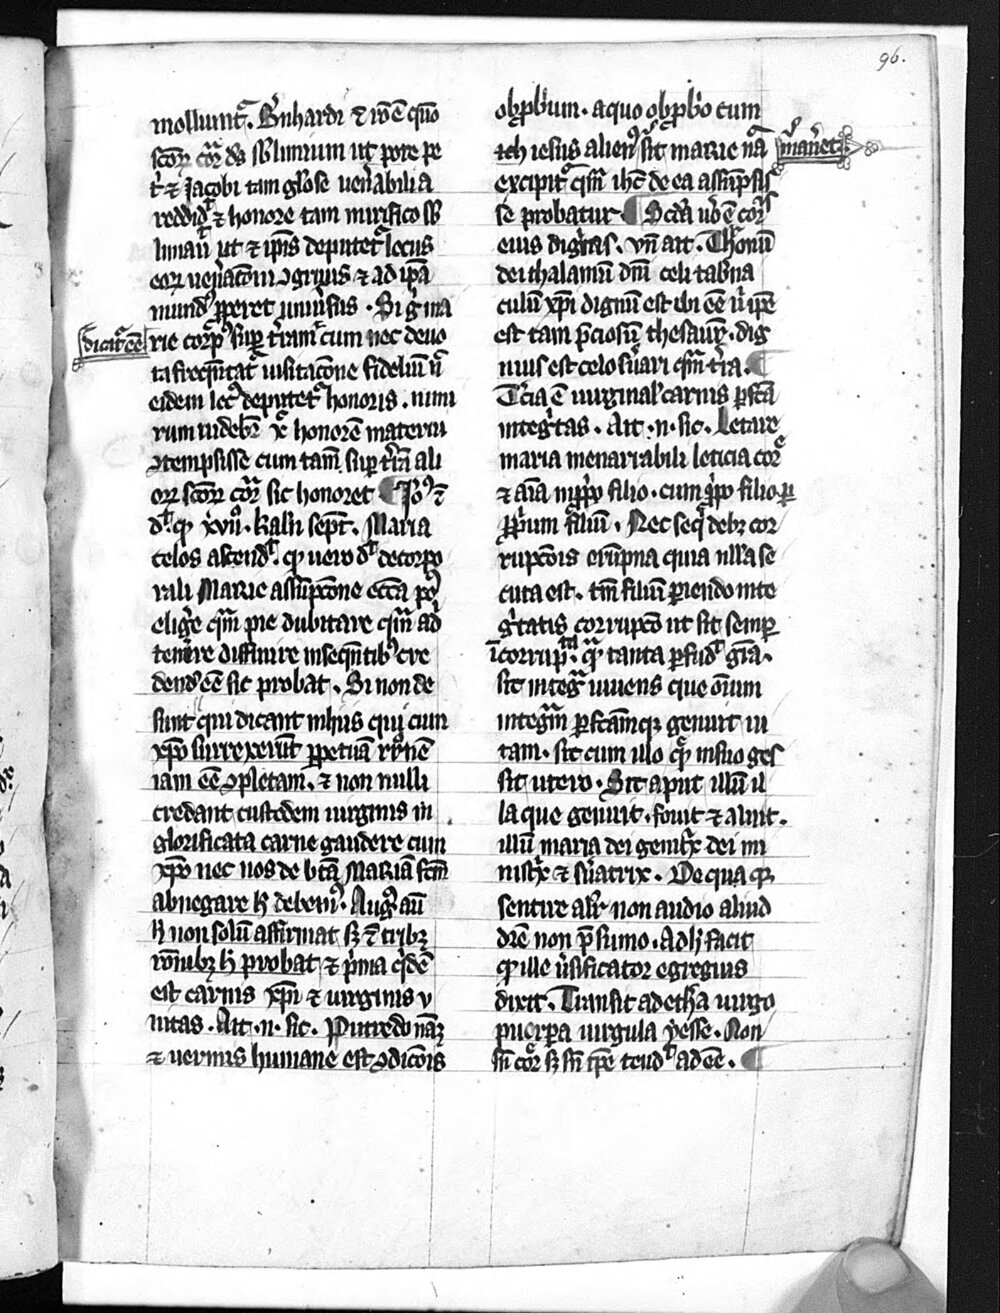 96.
molliuntᷣ. B̾nhardi ⁊ rōē q̄uo
scōꝝ cōꝝ ds̄ sb̾limium ut pote pe
tᷣi ⁊ Jacobi tam gl̾ose uen̾abilia
reddidᷣ ⁊ honore tam mirifico sb̾
limauᷣ ut ⁊ ip̄is deputetᷣ locus
eoꝝ uen̾acōni ꝯgruus ⁊ ad ip̄a
mundꝰ ꝓperet uniu̾sus . Si gͥ ma
dicitᷣ eē
rie corpꝰ suꝑ t̾ram cum nec deuo
ta freqn̄tatᷣ uisitacōne fideliū n̄
eidem locꝰ deputetᷣ honoris . nimi
rum uidebr̄ xᷣ honorē materni
ꝯtempsisse cum tam suꝑ t̾rā ali
oꝝ scōꝝ cōꝝ sic honoret ¶ Joꝰ ē
dᷣ ꝙ xvııͦ . kal̾n sept̄ . Maria
celos ascendᷣ . ꝙ uero dᷣ de corpo
rali Marie assūpcōne ecc̄a poꝰ
elig̾e qᷓm pie dubitare qᷓm ad
tem̾re diffinire inseqn̄tibꝰ cre
dendū eē sic probat . Si non de
sunt qui dicant in hiis qui cum
xp̄o surrexerūt ꝑpetuā r̾rc̄nē
iam eē ꝯpletam . ⁊ non nulli
credant custodem uirginis in
glorificata carne gaudere cum
xp̄o nec nos de btā Mariā fc̄m̄
abnegare h̾ debemꝰ . Augꝰ aū
h̾ non solū affirmat sꝫ ⁊ tribꝫ
rōnibꝫ h̾ probat ⁊ pͥma qͥdē
est carnis xp̄i ⁊ uirginis v
nitas . Ait .n. sic . Putredo nāꝫ
⁊ uermis humane est ꝯdicōis
obꝓbrium . a quo obꝓbrio cum
ich iesus alienꝰ sit marie nā
m̾ manet
excipitᷣ qᷓm ih̄c de ea assūpsis
se probatur ¶ Sc̄da ū̾ ē corꝑis
eius dignͥtas . vn̄ ait . Thronū
dei thalamū dn̄i celi tab̾na
culū xp̄i dignū est ibi eē uᷣ ip̄e
est tam p̄ciosū thesauꝝ . dig
nius est celo su̾ari qᷓm t̾ra . ¶
T̾cia ē uirginal̾ carnis ꝑfc̄ā
integͥtas . Ait .n. sic . Letare
maria menarrabili leticia corᷣe
⁊ aīa in ꝓpͥo filio . cum ꝓpͥo filio ꝑ
ꝓprium filiū . Nec seqͥ debꝫ cor
rupcōis erūpna quia nll̾a se
cuta est . tm̄ filiū ꝑiendo inte
gͥtatis corrupcō ut sit semꝑ
īcorrupta . qᷓ tanta ꝑfudᷣ gr̄a .
sit integᷓ uiuens que oīum
integᷓm ꝑfcāmqꝫ genuit ui
tam . sit cum illo qᷓ in suo ges
sit utero . Sit aput illū il
la que genuit . fouit ⁊ aluit .
illū maria dei genitᷣx dei mi
nistᷣx ⁊ su̾atrix . De qua qꝫ
sentire alr̾ non audio aliud
dic̄e non p̄sumo . Ad h̾ facit
ꝙ ille u̾sificator egregius
dixit . Transit ad eth̾a uirgo
puerpera uirgula yesse . Non
sn̄ corꝑe sꝫ sn̄ tp̄e tendᷣ ad eē . ¶